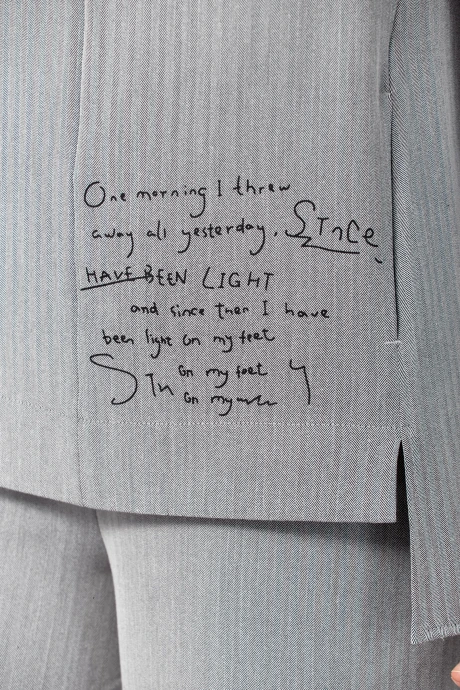 One morning I threw
away all yesterday. SInce
HAVE BEEN LIGHT
and since then I have
been light on my feet
on my feet
on my